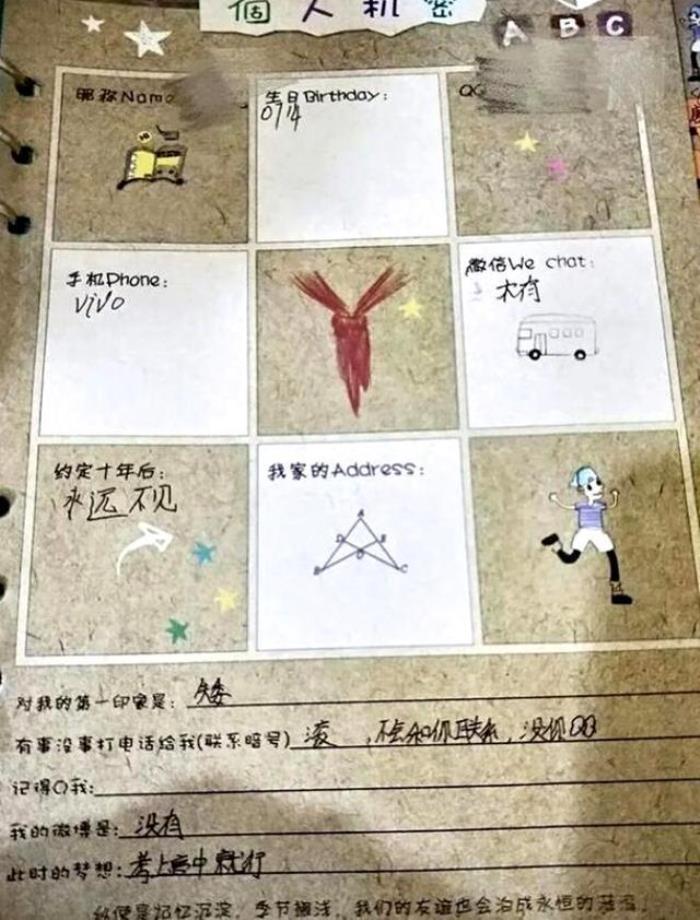 個人机密
A B C
昵称Name
生日Birthday:
0714
QQ
手机Phone:
vivo
微信We chat:
木有
约定十年后:
永远不见
我家的Address:
A
D E
O
B C
对我的第一印象是: 矮
有事没事打电话给我(联系暗号) 滚,不会和你联系,没你QQ
记得Q我:
我的微博是: 没有
此时的梦想: 考上高中就行
纵使是记忆沉淀,季节搁浅,我们的友谊也会泊成永恒的